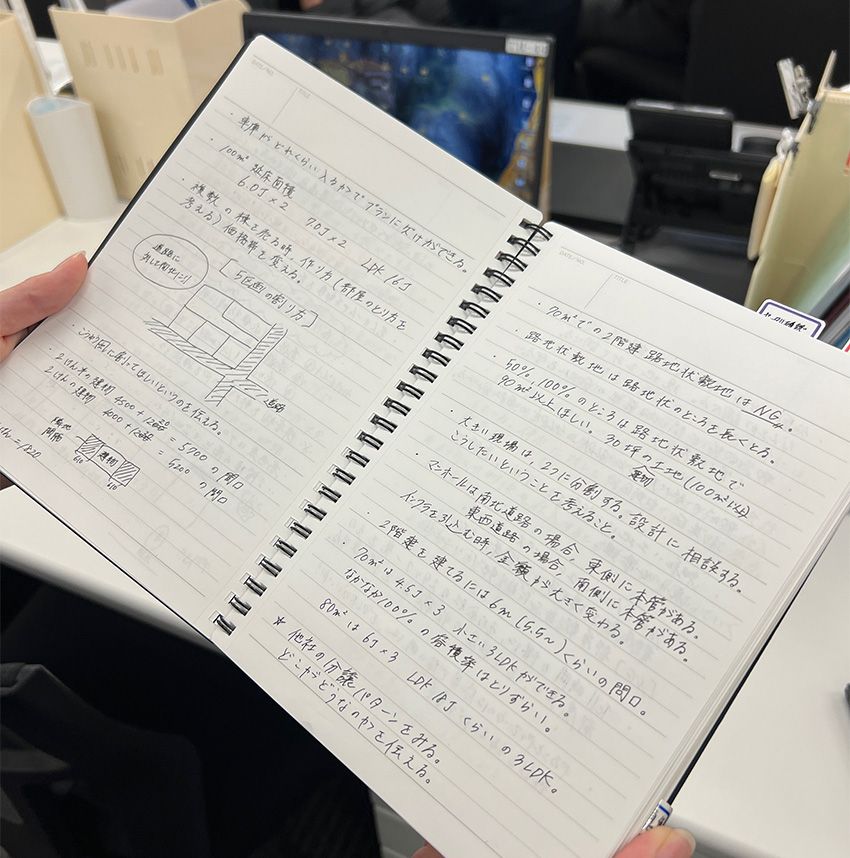 DATE/NO.
TITLE
・車庫からどれくらい入るかでプランに欠けができる。
・100m² 延床面積
6.0J×2 7.0J×2 LDK 16J
・複数の棟を売る時、作り方(部屋のとり方を
考える)価格帯を変える。
道路に
[5区画の割り方]
道路
・こういう風に割ってほしいというのを伝える。
・2けん半の建物 4500+1200 = 5700の間口
2けんの建物 4000+1200 = 5200の間口
隣地
間隔
建物
610
610
DATE/NO.
TITLE
・70m²での2階建路地状敷地はNG。
路地状敷地は路地状のところを長くとる。
・50% 100%のところは路地状敷地で
90m²以上ほしい。30坪の土地(100m²以上)
建物
・大きい現場は、2つに分割する。設計に相談する。
こうしたいということを考えること。
・マンホールは南北道路の場合、東側に本管がある。
東西道路の場合、南側に本管がある。
インフラを引込む時、金額が大きく変わる。
・2階建を建てるには6m(5.5〜)くらいの間口。
・70m²は4.5J×3 小さい3LDKができる。
なかなか100%の容積率はとりずらい。
80m²は6J×3 LDK 18Jくらいの3LDK。
*他社の分譲パターンをみる。
どこがどうなのか?を伝える。